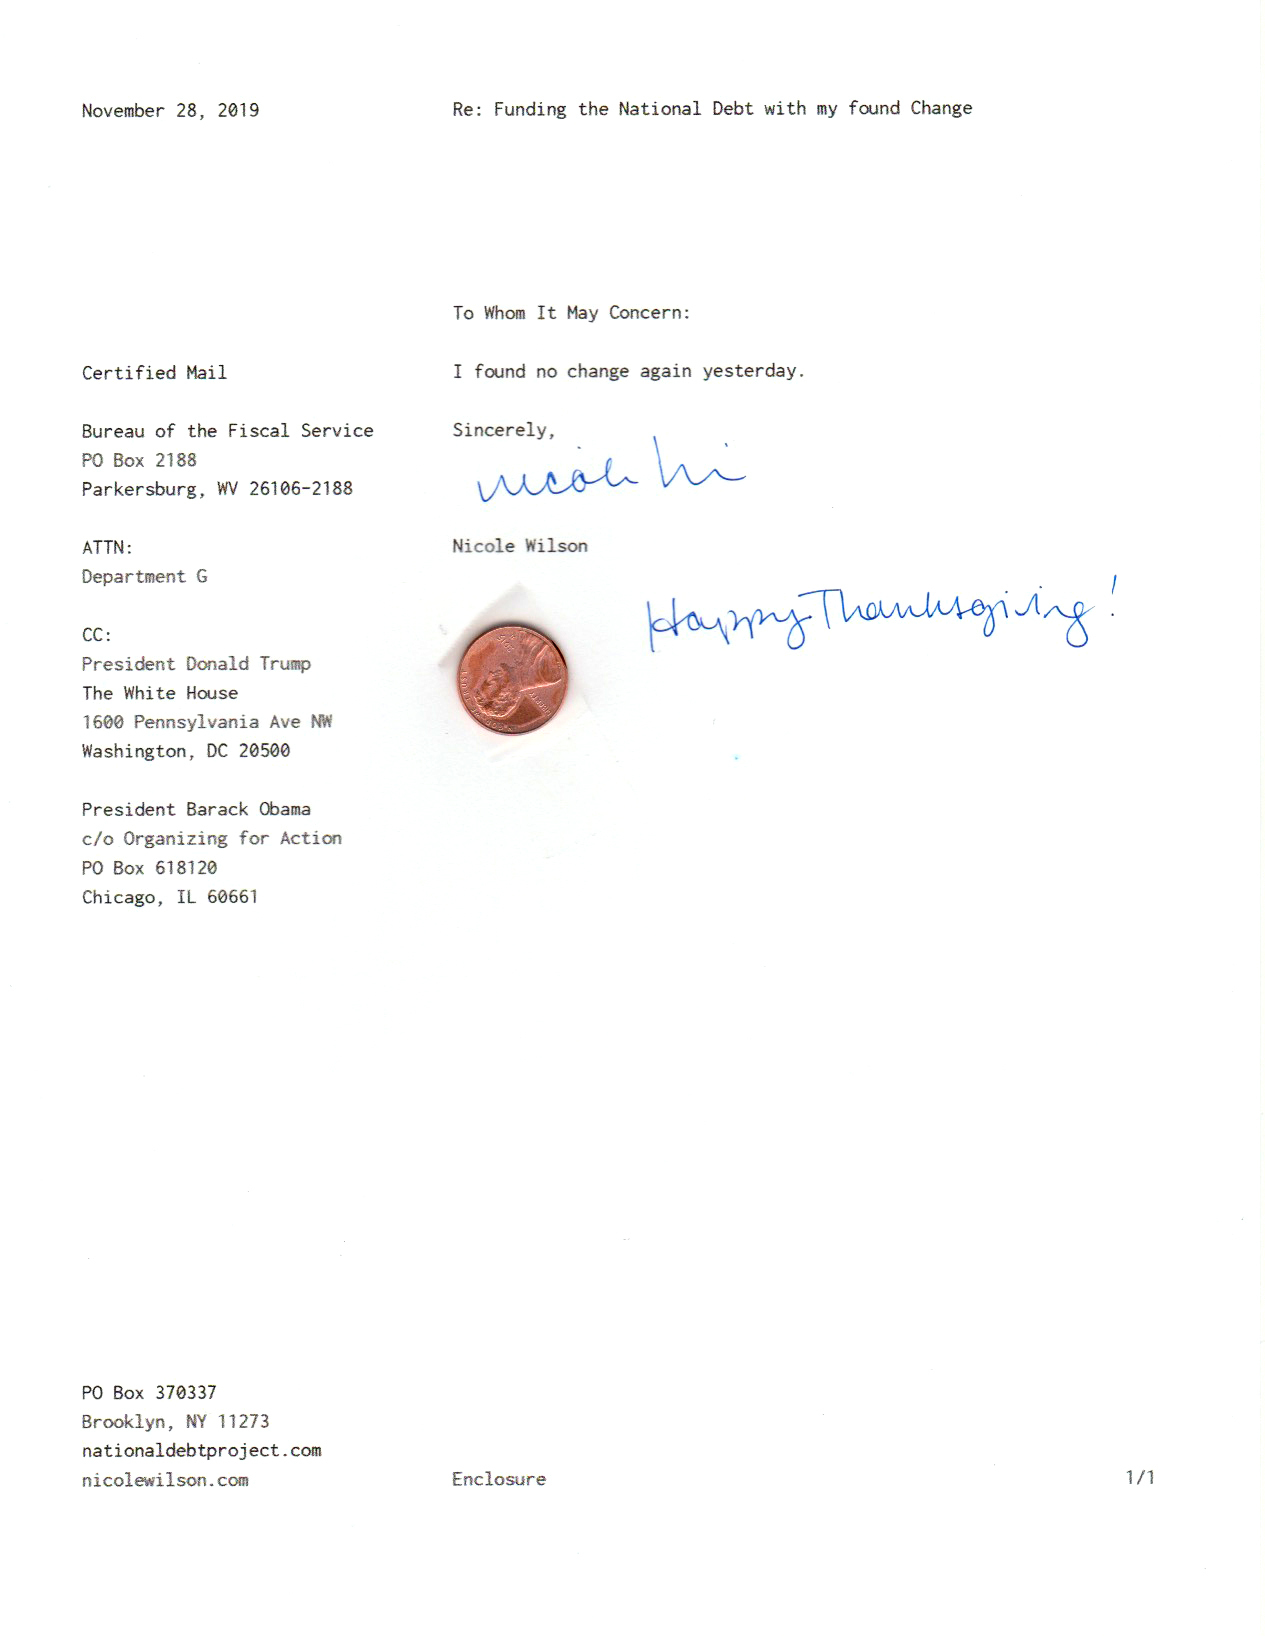 November 28, 2019
Re: Funding the National Debt with my found Change
To Whom It May Concern:
I found no change again yesterday.
Sincerely,
Nicole Wilson
Happy Thanksgiving!
Certified Mail
Bureau of the Fiscal Service
PO Box 2188
Parkersburg, WV 26106-2188
ATTN:
Department G
CC:
President Donald Trump
The White House
1600 Pennsylvania Ave NW
Washington, DC 20500
President Barack Obama
c/o Organizing for Action
PO Box 618120
Chicago, IL 60661
PO Box 370337
Brooklyn, NY 11273
nationaldebtproject.com
nicolewilson.com
Enclosure
1/1